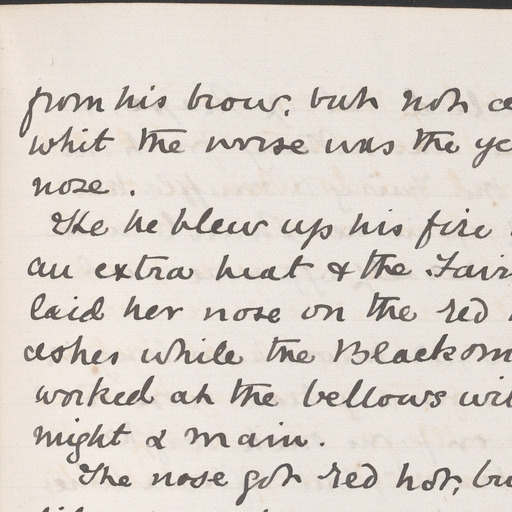 from his brow, but not a
whit the worse was the
nose.
The he blew up his fire
an extra heat & the Fair
laid her nose on the red
ashes while the Blacksm
worked at the bellows wi
might & main.
The nose got red hot, bu